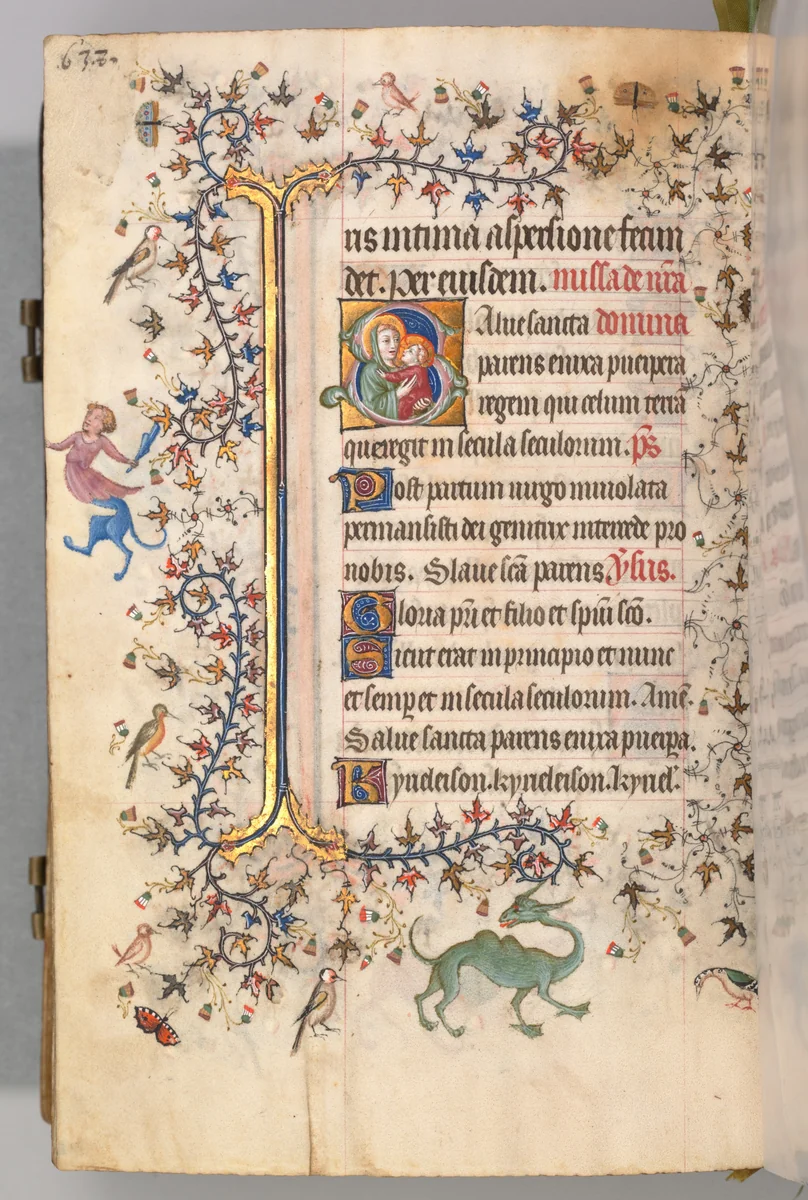 632.
ris intima aspersione fecun
det. Per eiusdem. missa de nr̄a
Salue sancta domina
parens enixa puerpera
regem qui celum terrā
que regit in secula seculorum. p̄s
Post partum uirgo inuiolata
permansisti dei genitrix intercede pro
nobis. Salue sc̄a parens
Gloria pr̄i et filio et spiūi sc̄o.
Sicut erat in principio et nunc
et semp̱ et in secula seculorum. Amē.
Salue sancta parens enixa puerp̱a.
kyrieleison. kyrieleison. kyriel'.